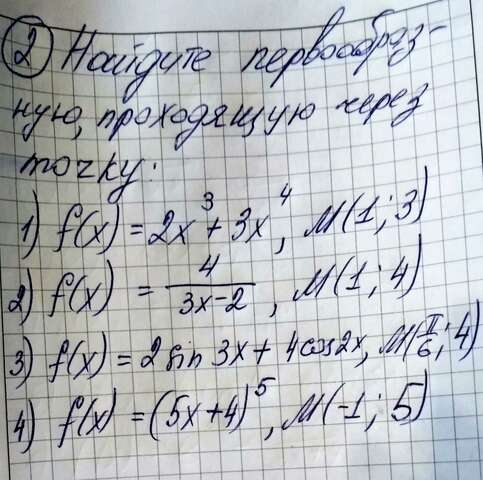 2 Найдите первообраз-
ную, проходящую через
точку:
1) f(x) = 2x³ + 3x⁴, M(1; 3)
2) f(x) = 4/(3x-2), M(1; 4)
3) f(x) = 2 sin 3x + 4cos2x, M(π/6; 4)
4) f(x) = (5x+4)⁵, M(-1; 5)